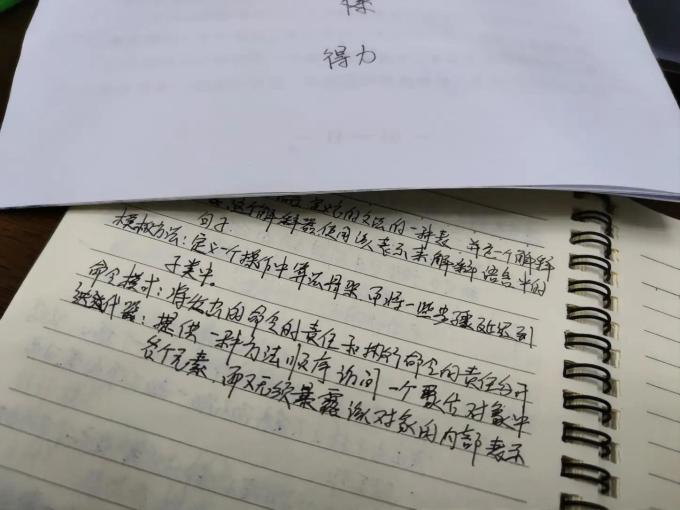 得力
定义它的文法的一种表示,并定一个解释
这个解释器使用该表示来解释语言中的
句子
模板方法:定义一个操作中算法骨架,而将一些步骤延迟到
子类中。
命令模式:将发出的命令的责任和执行命令的责任分开
迭代器:提供一种方法顺序访问一个聚合对象中
各个元素,而又无须暴露该对象的内部表示